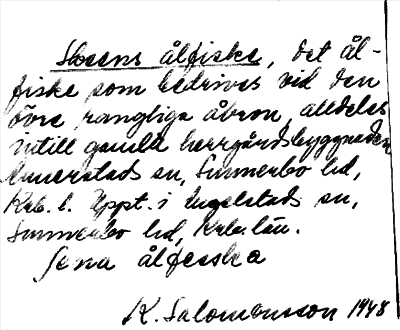 Skeens ålfiske, det ål-
fiske som bedrives vid den
övre rangliga åbron, alldeles
intill gamla herrgårdsbyggnaden
Annerstads sn, Sunnerbo hd,
Krb. l. Uppt. i Ångelstads sn,
Sunnerbo hd, Krb. län.
Sena ålfeska
K. Salomonsson 1948